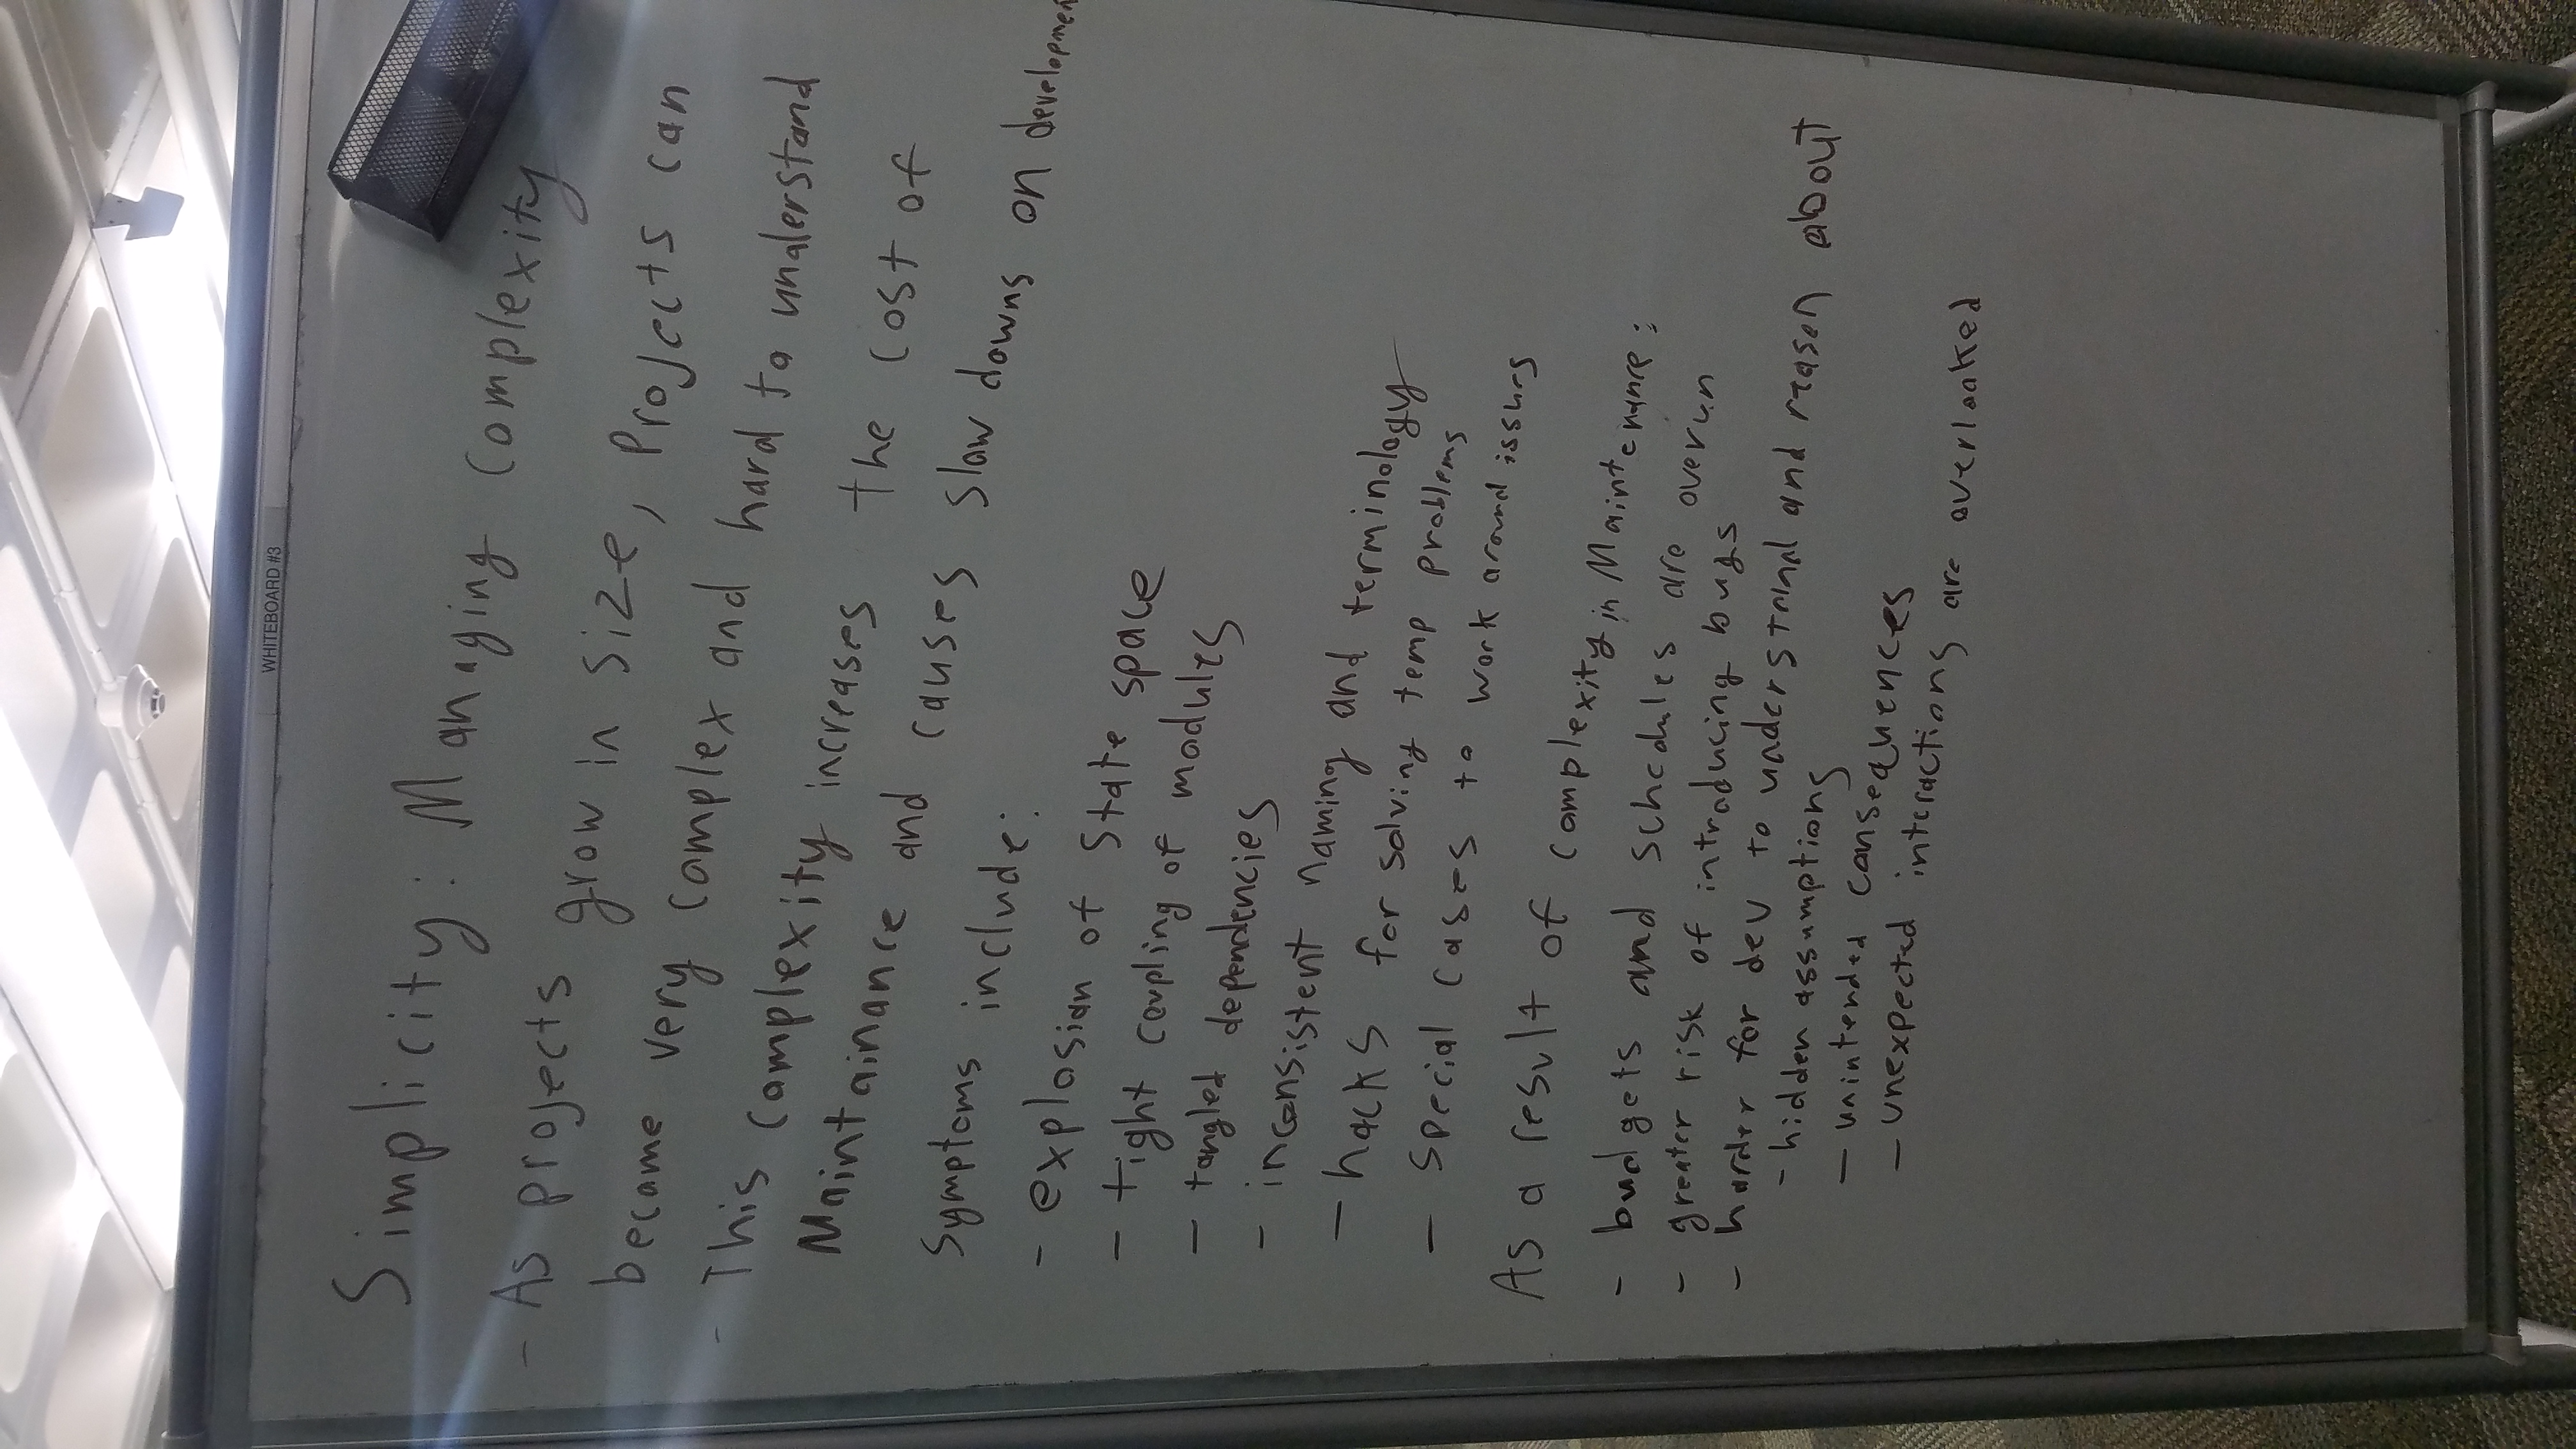 WHITEBOARD #3
Simplicity: Managing Complexity
- As projects grow in size, Projects can
become very complex and hard to understand
- This complexity increases the cost of
Maintainance and causes slow downs on developmen
Symptoms include:
- explosion of State space
- tight coupling of modules
- tangled dependencies
- inconsistent naming and terminology
- hacks for solving temp problems
- special cases to work around issues
As a result of complexity in Maintenance:
- budgets and schedules are overun
- greater risk of introducing bugs
- harder for dev to understand and reason about
- hidden assumptions
- unintended consequences
- unexpected interactions are overlooked